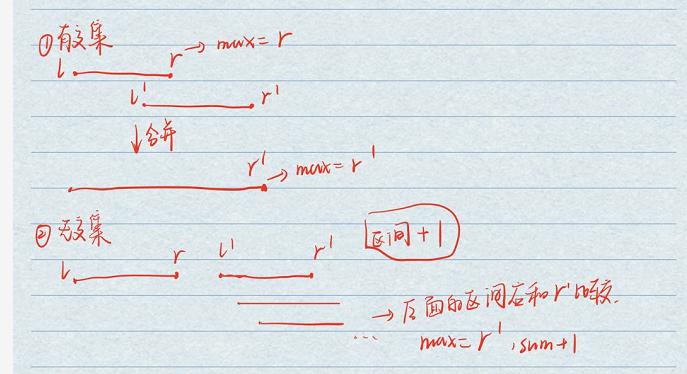 ① 有交集
l r → max = r
l' r'
↓合并
r' → max = r'
② 无交集
区间 + 1
l r l' r'
→ 后面的区间在和 r' 比较.
...
max = r', sum+1